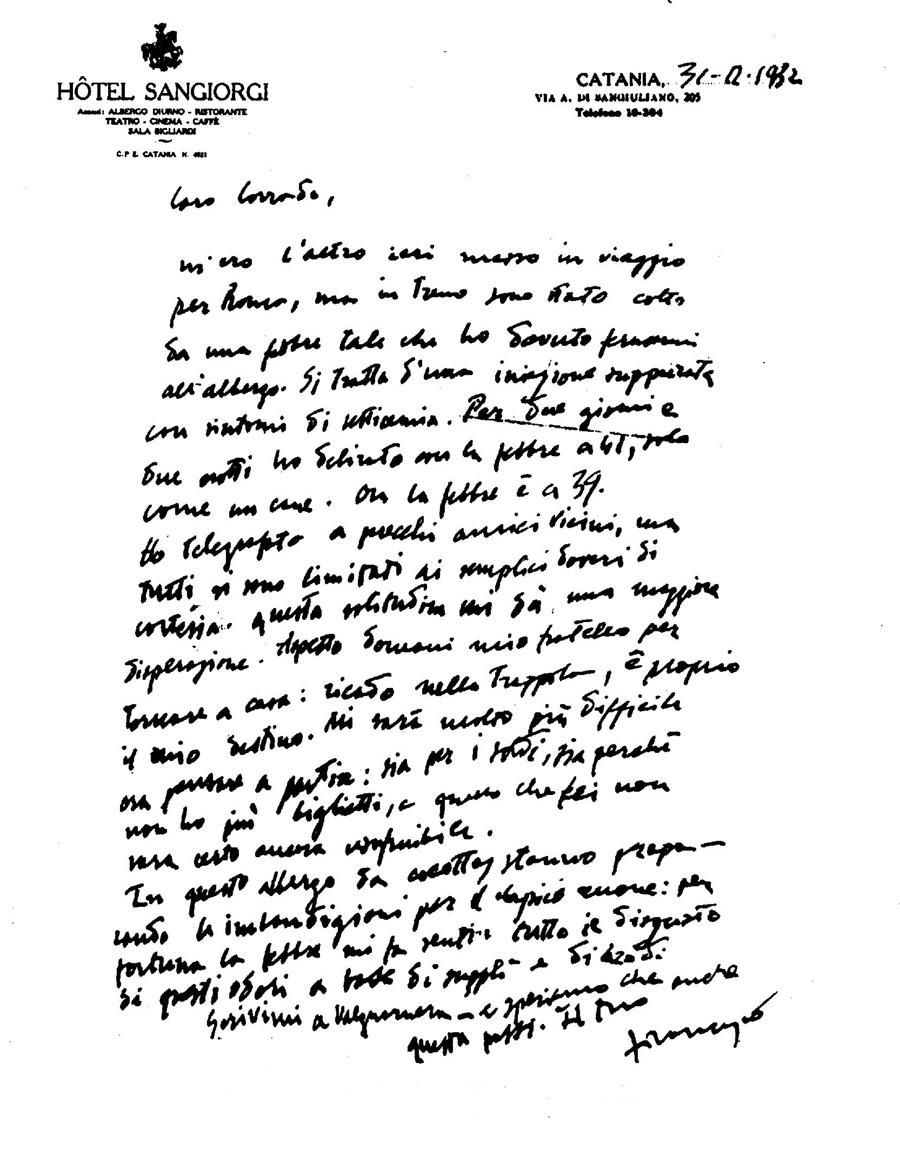 HÔTEL SANGIORGI
Annessi: ALBERGO DIURNO - RISTORANTE
TEATRO - CINEMA - CAFFÈ
SALA BIGLIARDI
C.P.E. CATANIA N. 4621
CATANIA, 31-12-1932
VIA A. DI SANGIULIANO, 205
Telefono 10-204
Caro Corrado,
m'ero l'altro ieri messo in viaggio
per Roma, ma in treno sono stato colto
da una febbre tale che ho dovuto fermarmi
all'albergo. Si tratta d'una iniezione suppurata
con sintomi di setticemia. Per due giorni e
due notti ho delirato con la febbre a 41, solo
come un cane. Ora la febbre è a 39.
Ho telegrafato a parecchi amici vicini, ma
tutti si sono limitati ai semplici doveri di
cortesia. Questa solitudine mi dà una maggiore
disperazione. Aspetto domani mio fratello per
tornare a casa: ricado nella trappola, è proprio
il mio destino. Mi sarà molto più difficile
ora pensare a partire: sia per i soldi, sia perché
non ho più biglietti, e questo che fei non
sarà certo ancora usufruibile.
In questo albergo da stanno prepa-
rando le imbandigioni per il cenone: per
fortuna la febbre mi fa sentire tutto il disgusto
di questi odori a base di supplì e di
Scrivimi a Valguarnera — e speriamo che anche
questa passi. Il tuo
Francesco